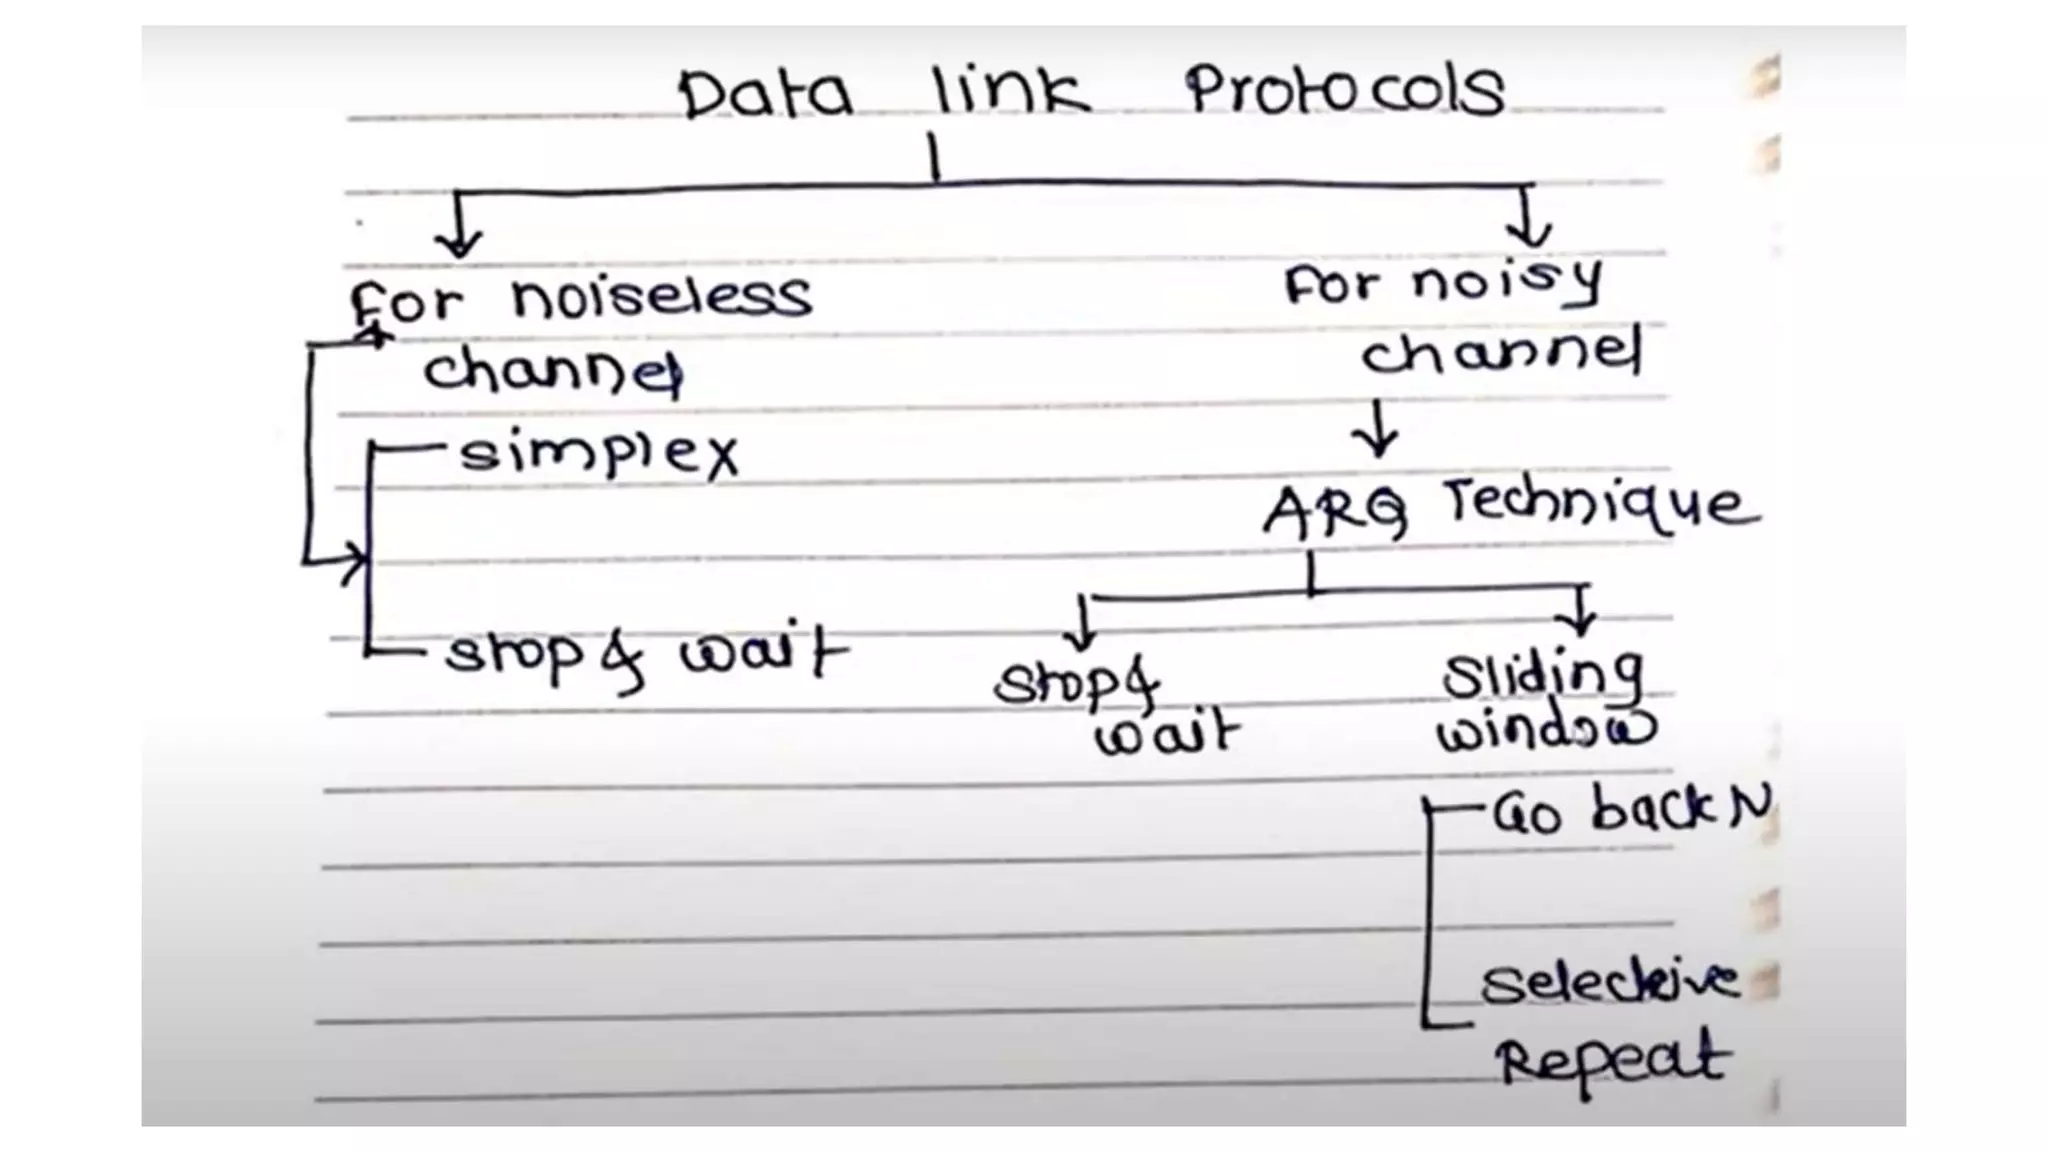 Data link Protocols
For noiseless
channel
simplex
stop & wait
For noisy
channel
ARQ Technique
stop &
wait
Sliding
window
Go back N
Selective
Repeat